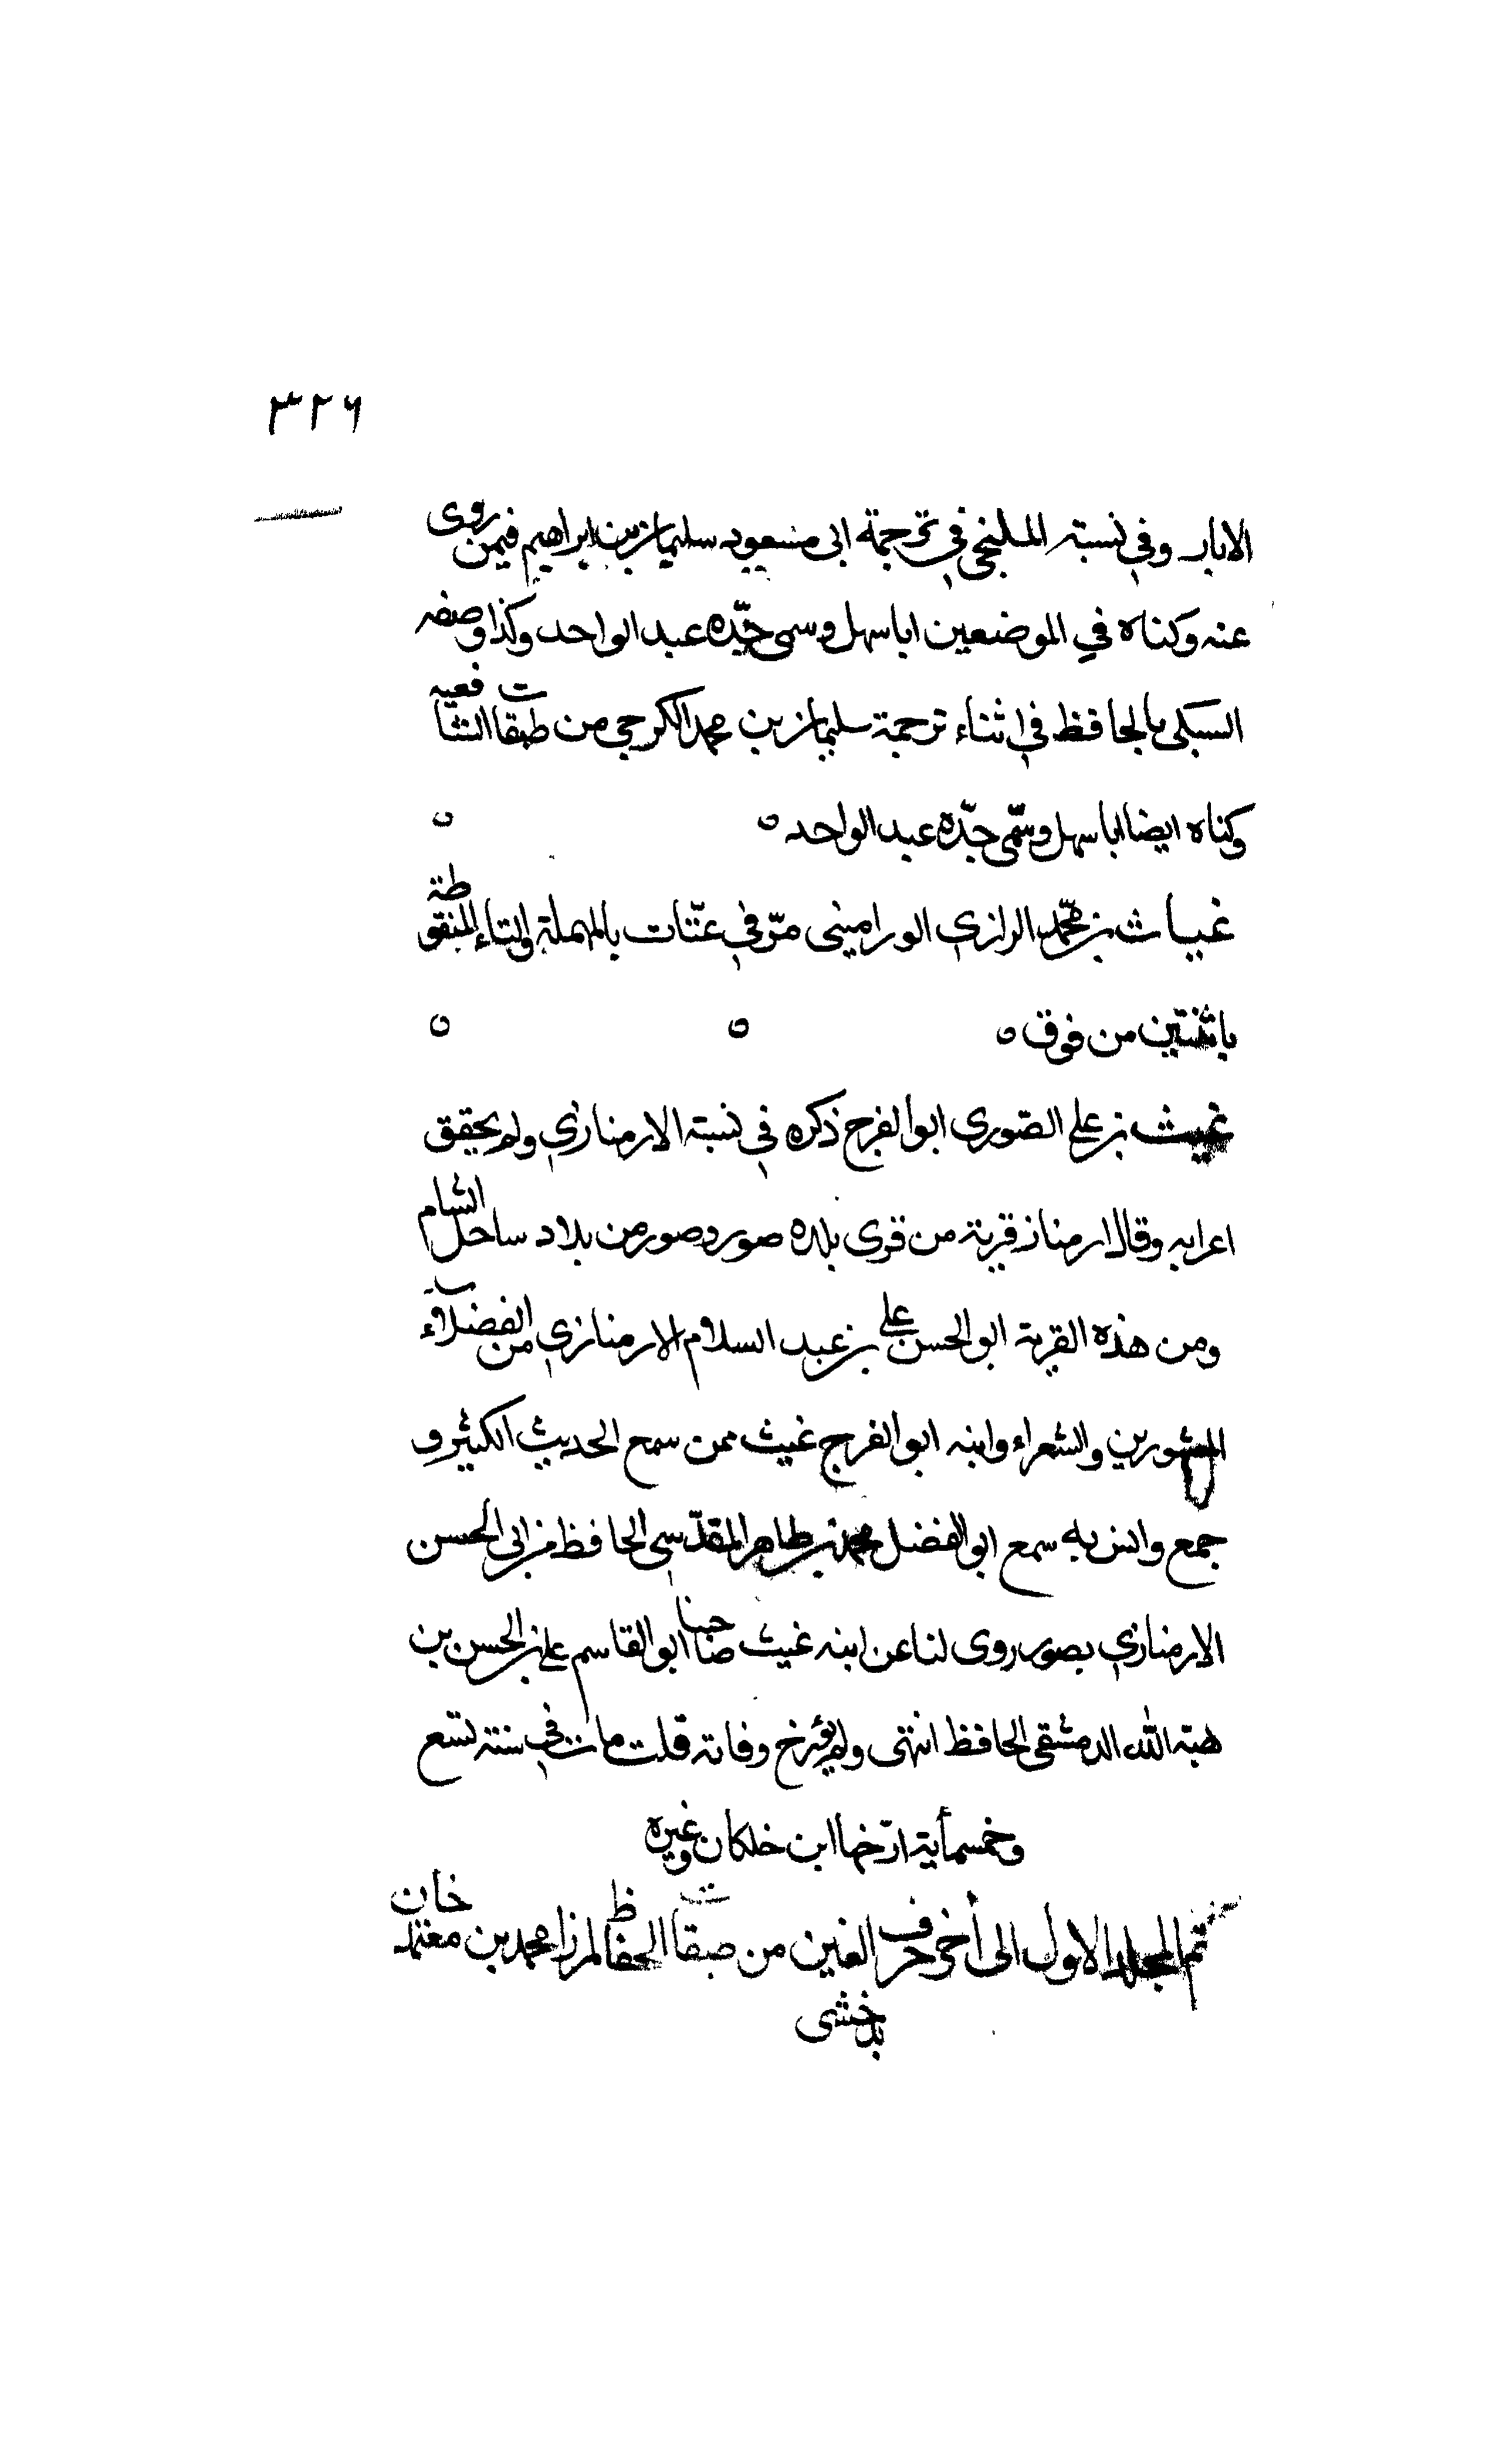 ٣٢٦
الابار وفي نسبته الملنجى في ترجمة ابى مسعود سليمان بن ابراهيم فيمن روى
عنه وكناه في الموضعين ابا سهل وسمى جدّه عبد الواحد وكذا وصفه
السبكى بالحافظ في اثناء ترجمة سليمان بن محمد الكرجى من طبقات الشافعيه
وكناه ايضا ابا سهل وسمّى جدّه عبد الواحد ٥ ٥
غياث بن محمّد الرازي الوراميني مرّ في عتّات بالمهملة والتاء المنقوطة
باثنتين من فوق ٥ ٥ ٥
غيث بن على الصّورى ابو الفرج ذكره في نسبة الارمنازي ولم يحقق
اعرابه وقال ارمناز قرية من قرى بلده صور وصور من بلاد ساحل الشام
ومن هذه القرية ابو الحسن على بن عبد السلام الارمنازي من الفضلاء
المشهورين والشعراء وابنه ابو الفرج غيث ممن سمع الحديث الكثير و
جمع وانس به سمع ابو الفضل محمد بن طاهر المقدّسى الحافظ من ابى الحسن
الارمنازي بصور روى لنا عن ابنه غيث صاحبنا ابو القاسم على بن الحسن بن
هبة الله الدمشقى الحافظ انتهى ولم يؤرخ وفاته قلت مات في سنة تسع
وخمسمأية ارّخها ابن خلكان وغيره
تم المجلد الاول الى أخر حرف الغين من طبقات الحفاظ لمرزا محمد بن معتمد خان
بدخشى